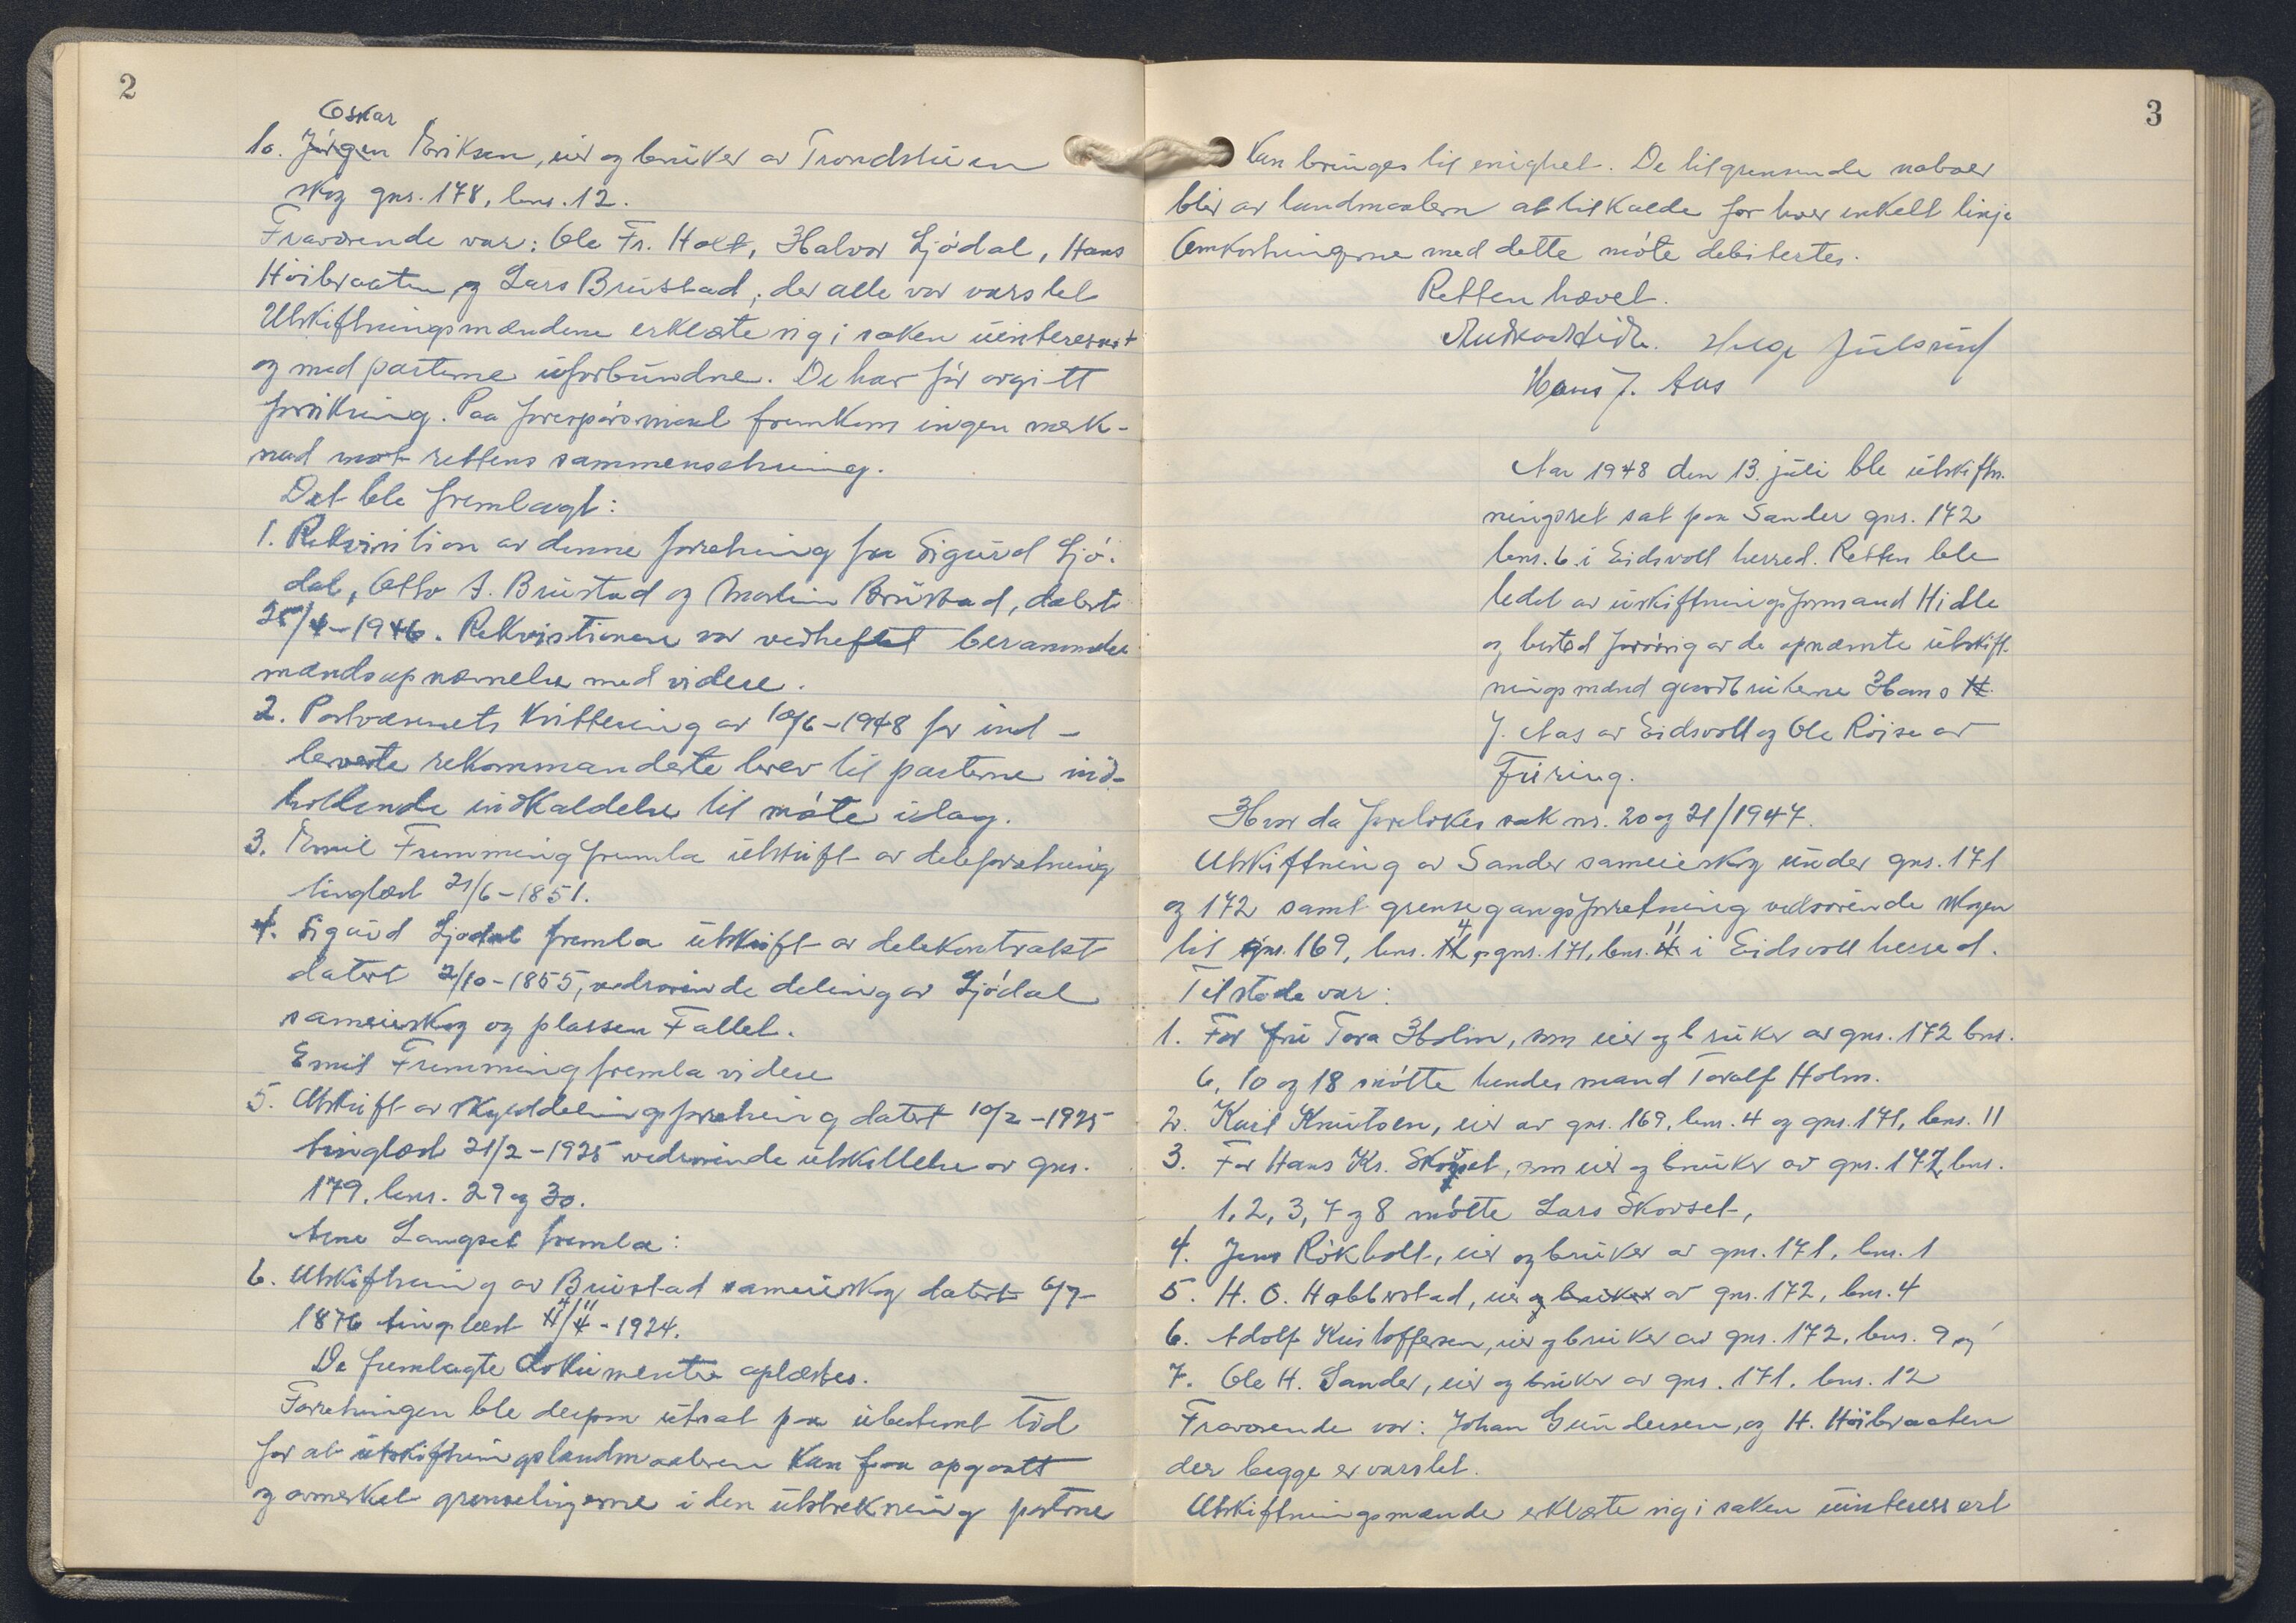 2
Oskar
10. Jørgen Eriksen, eier og bruker av Trondstuen
skog gnr. 178, bnr. 12.
Fraværende var: Ole Fr. Holt, Halvor Ljødal, Hans
Høibraaten og Lars Brustad, der alle var varslet
Utskiftningsmændene erklærte sig i saken uinteressert
og med parterne uforbundne. De har før avgitt
forsikring. Paa forespørsmaal fremkom ingen merk-
nad mot rettens sammensetning.
Det ble fremlagt:
1. Rekvisition av denne forretning fra Sigurd Ljø-
dal, Otto A. Brustad og Martin Brustad, datert
25/4-1946. Rekvisitionen var vedheftet berammelse
mandsopnævnelse med videre.
2. Postvæsenets kvittering av 10/6-1948 for ind-
leverte rekommanderte brev til parterne ind-
holdende indkaldelse til møte idag.
3. Emil Fremming fremla utskrift av deleforretning
tinglæst 21/6-1851.
4. Sigurd Ljødal fremla utskrift av delekontrakt
datert 2/10-1855, vedrørende deling av Ljødal
sameieskog og plassen Fallet.
Emil Fremming fremla videre
5. Utskrift av skylddelingsforretning datert 10/2-1925
tinglæst 21/2-1925 vedrørende utskillelse av gnr.
179, bnr. 29 og 30.
Arne Langset fremla:
6. Utskiftning av Brustad sameieskog datert 6/7-
1876 tinglæst 4/11-1924.
De fremlagte dokumenter oplæstes.
Forretningen ble derpaa utsat paa ubestemt tid
for at utskiftningslandmaaleren kan faa opgaatt
og avmerket grenselinjerne i den utstrekning parterne
3
kan bringes til enighet. De tilgrensende naboer
blir av landmaalern at tilkalde for hver enkelt linje
Omkostningerne med dette møte debitertes.
Retten hævet.
Helge Julsrud
Hans J. Aas
Aar 1948 den 13. juli ble utskift-
ningsret sat paa Sander gnr. 172
bnr. 6 i Eidsvoll herred. Retten ble
ledet av utskiftningsformand Hidle
og bestod forøvrig av de opnævnte utskift-
ningsmænd gaardbrukerne Hans H.
J. Aas av Eidsvoll og Ole Röise av
Furing.
Hvor da forelökes sak nr. 20 og 21/1947.
Utskiftning av Sander sameieskog under gnr. 171
og 172 samt grensegangsforretning vedrørende skogen
til gnr. 169, bnr. 4 og gnr. 171, bnr. 11 i Eidsvoll herred.
Tilstede var:
1. For fru Tora Holm, som eier og bruker av gnr. 172 bnr.
6, 10 og 18 møtte hendes mand Toralf Holm.
2. Karl Knutsen, eier av gnr. 169, bnr. 4 og gnr. 171, bnr. 11
3. For Hans Kr. Skovset, som eier og bruker av gnr. 172, bnr.
1, 2, 3, 7 og 8 møtte Lars Skovset,
4. Jens Rökholt, eier og bruker av gnr. 171, bnr. 1
5. H. O. Habberstad, eier og bruker av gnr. 172, bnr. 4
6. Adolf Kristoffersen, eier og bruker av gnr. 172, bnr. 9 og
7. Ole H. Sander, eier og bruker av gnr. 171, bnr. 12
Fraværende var: Johan Gundersen, og H. Høibraaten
der begge er varslet.
Utskiftningsmænde erklærte sig i saken uinteressert